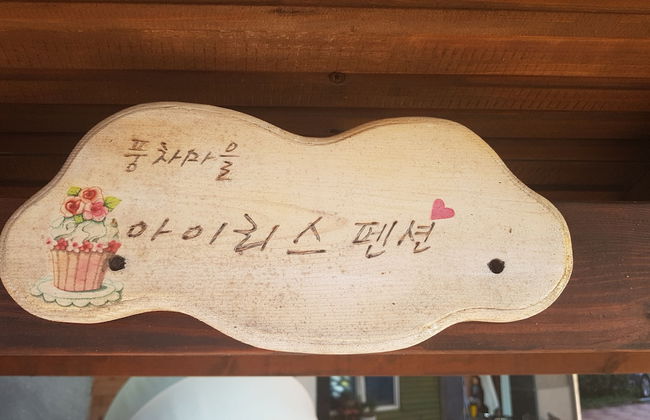 풍차마을
아이리스 펜션